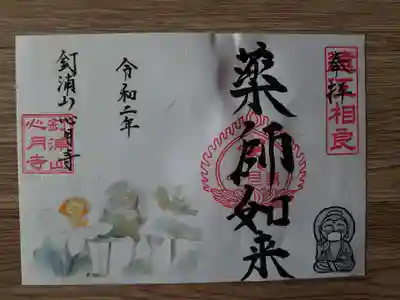 奉拝
遠江相良
薬師如来
令和二年
釘浦山
心月寺
釘浦山
心月寺